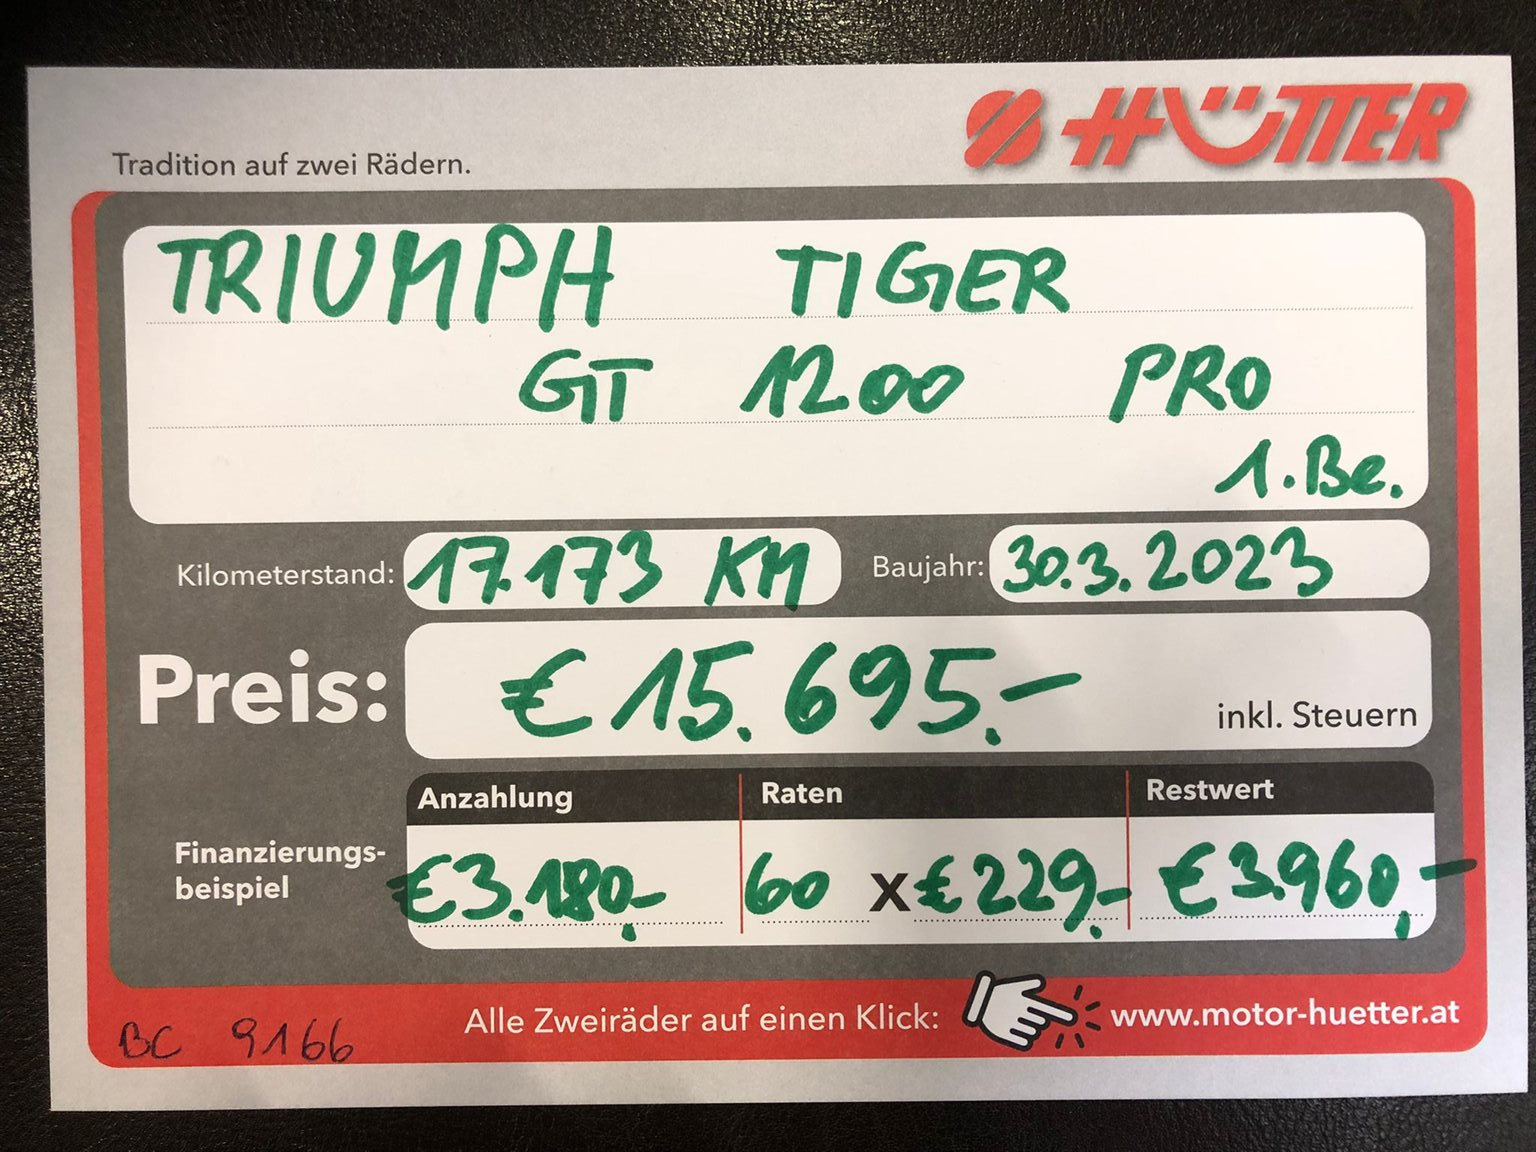 HÜTTER
Tradition auf zwei Rädern.
TRIUMPH TIGER
GT 1200 PRO
1.Be.
Kilometerstand: 17.173 KM Baujahr: 30.3.2023
Preis: € 15.695.- inkl. Steuern
Anzahlung Raten Restwert
Finanzierungs-
beispiel
€3.180,- 60 x €229,- €3.960,-
Alle Zweiräder auf einen Klick: www.motor-huetter.at
BC 9166